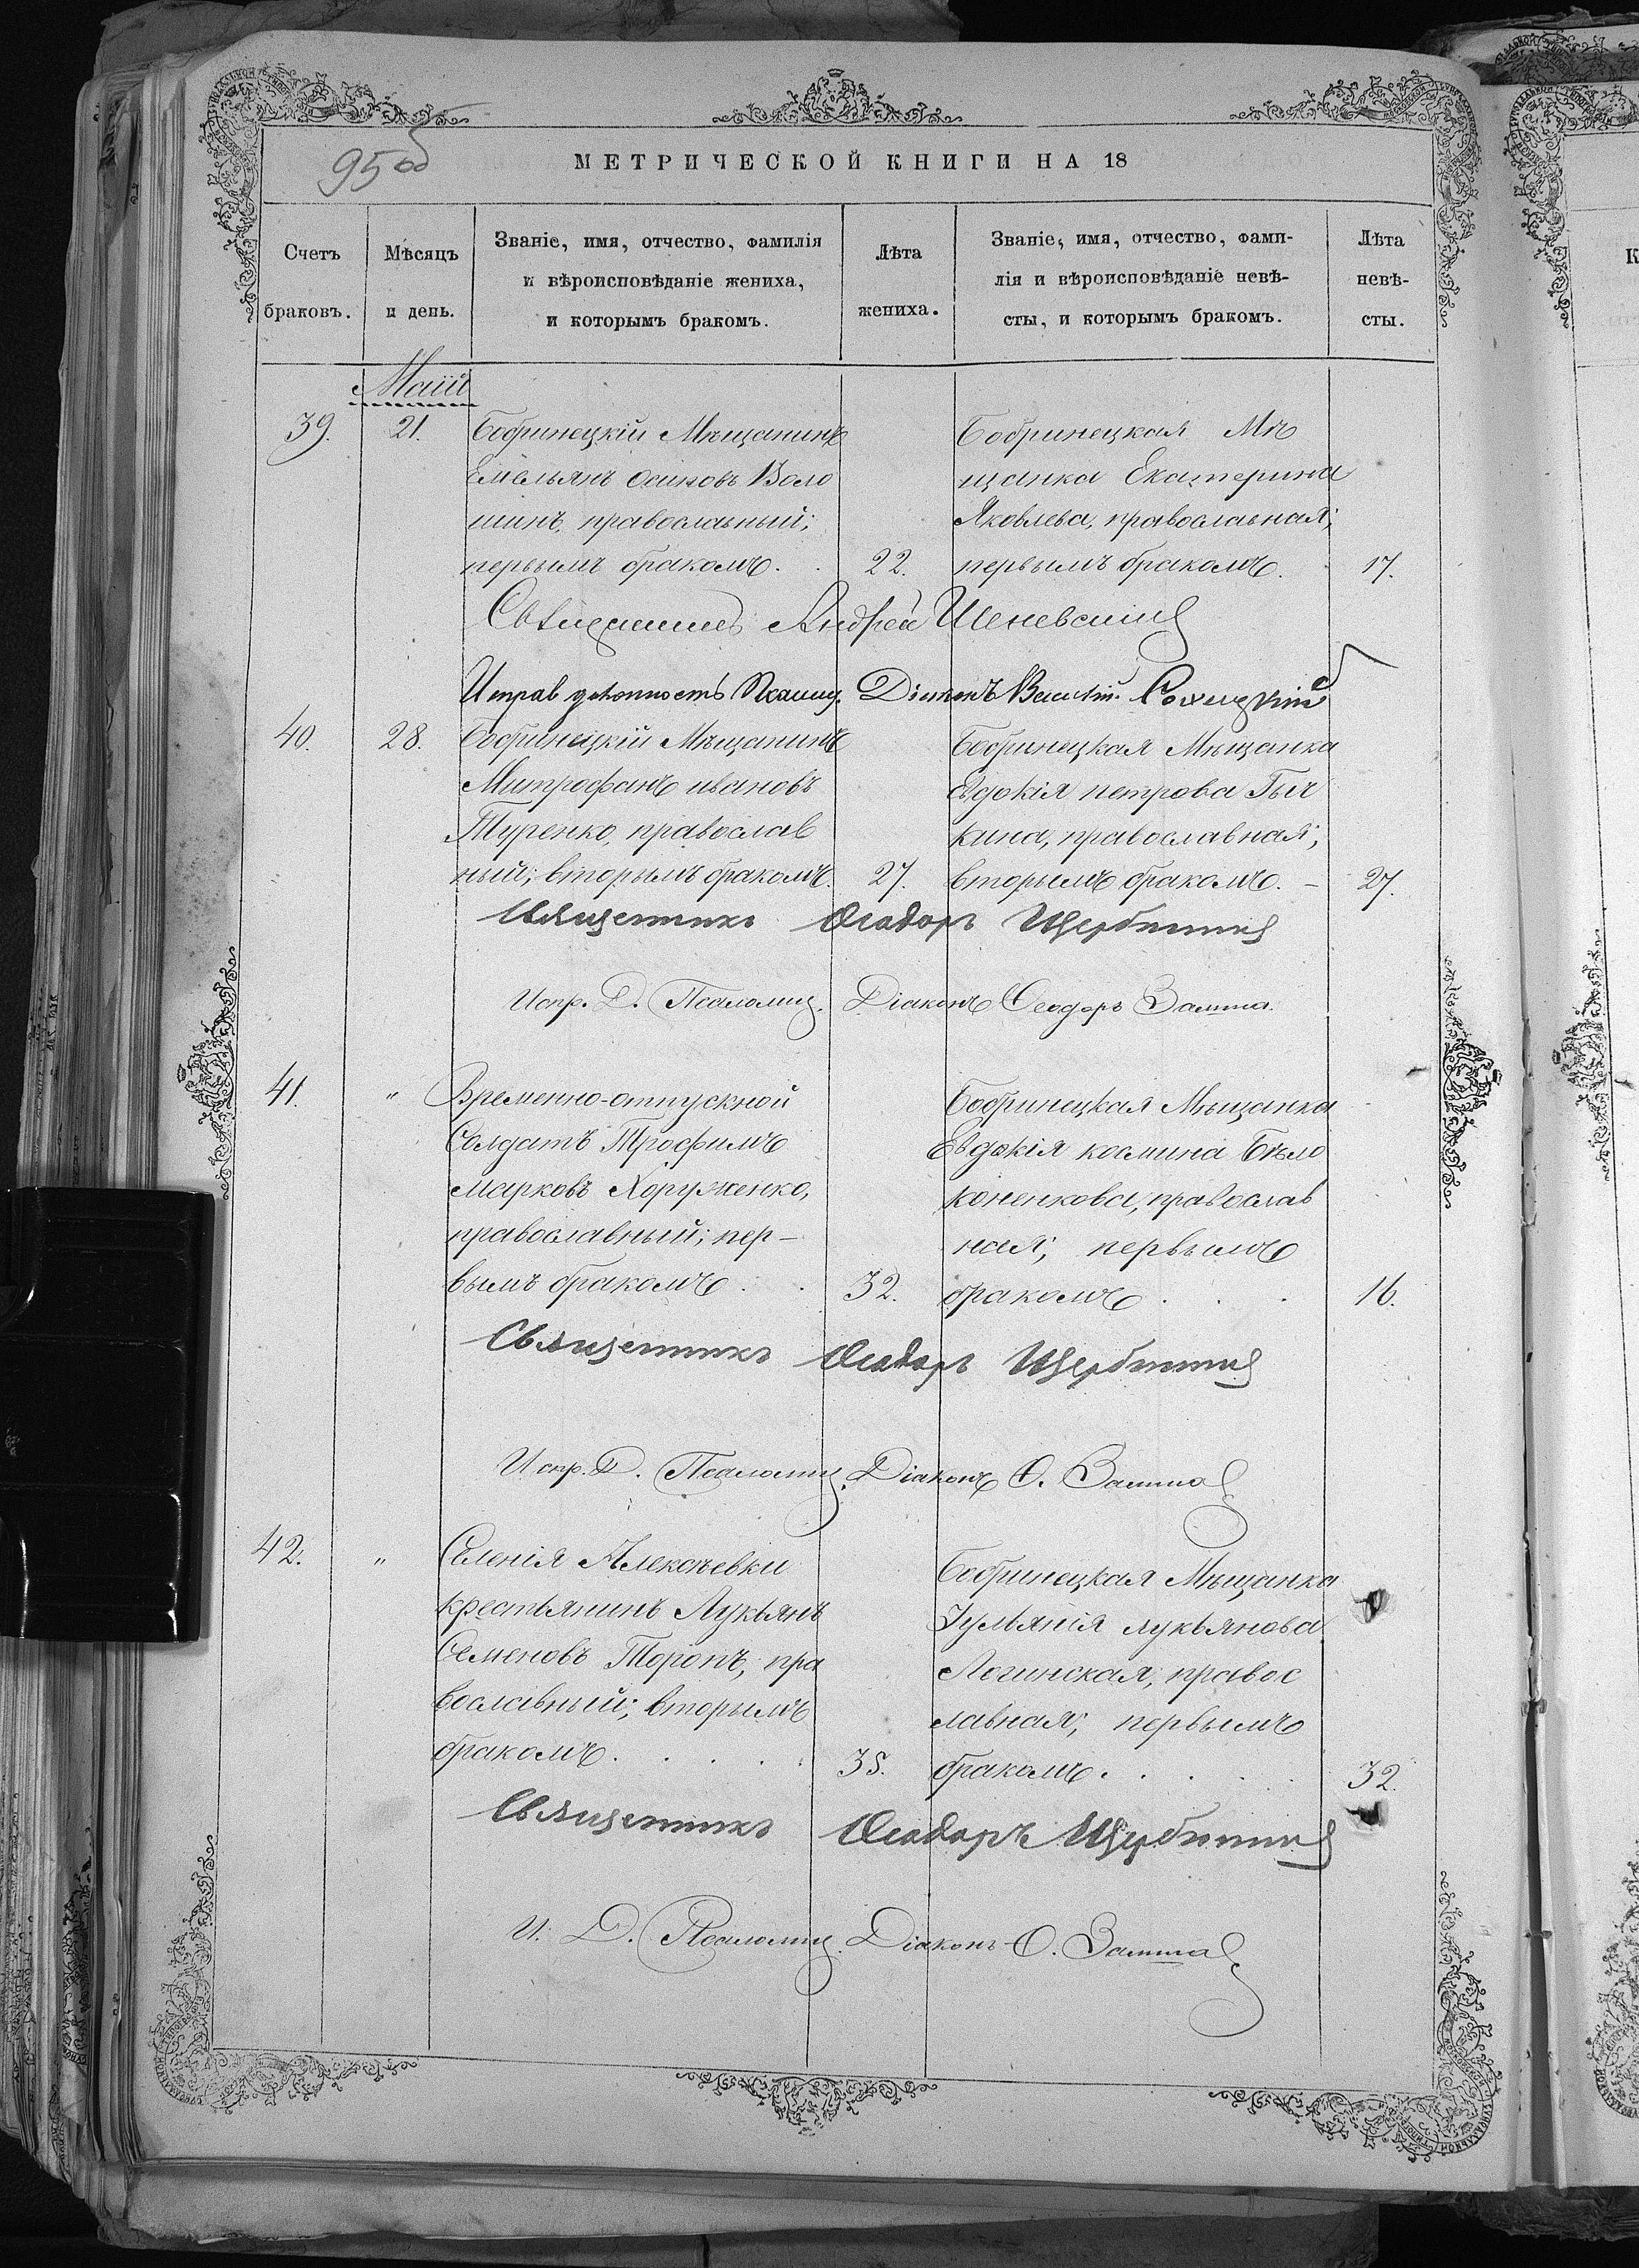 95 об
МЕТРИЧЕСКОЙ КНИГИ НА 18
Счетъ браковъ.
Мѣсяцъ и день.
Званіе, имя, отчество, фамилія
и вѣроисповѣданіе жениха,
и которымъ бракомъ.
Лѣта жениха.
Званіе, имя, отчество, фами-
лія и вѣроисповѣданіе невѣ-
сты, и которымъ бракомъ.
Лѣта невѣ-
сты.
Май
39.
21.
Бобринецкій Мѣщанинъ
Емельянъ Осиповъ Воло
шинъ, православный;
первымъ бракомъ.
22.
Бобринецкая Мѣ
щанка Екатерина
Яковлева, православная;
первымъ бракомъ.
17.
Священникъ Андрей
Исправ должность Псалмщ. Діаконъ
40.
28.
Бобринецкій Мѣщанинъ
Митрофанъ ивановъ
Туренко, православ
ный; вторымъ бракомъ.
27.
Бобринецкая Мѣщанка
Евдокія петрова
кина, православная;
вторымъ бракомъ. –
27.
Священникъ Ѳеодоръ
Испр. Д. Псаломщ. Діаконъ Ѳеодоръ
41.
"
Временно-отпускной
Солдатъ Трофимъ
Марковъ Хоруженко,
православный; пер–
вымъ бракомъ
32.
Бобринецкая Мѣщанка
Евдокія космина Бѣло
коненкова, православ
ная; первымъ
бракомъ
16.
Священникъ Ѳеодоръ
Испр. Д. Псаломщ. Діаконъ Ѳ.
42.
"
Селенія Алексѣевки
крестьянинъ Лукьянъ
Семеновъ Торопъ, пра
вославный; вторымъ
бракомъ.
35.
Бобринецкая Мѣщанка
Іульянія лукьянова
Логинская, правос
лавная; первымъ
бракомъ.
32.
Священникъ Ѳеодоръ
И. Д. Псаломщ. Діаконъ Ѳ.